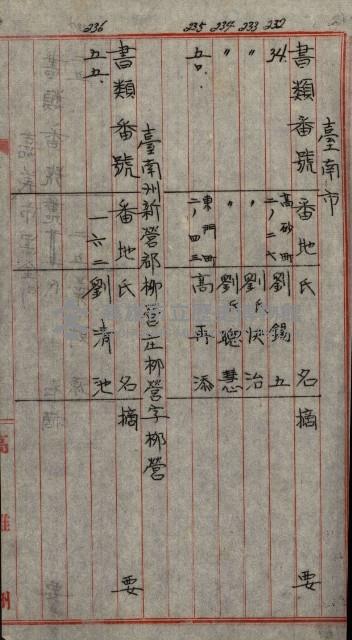 臺南市
書類番號 番地 氏名 摘要
232 34. 高砂町二ノ二六 劉錫五
233 〃 〃 劉氏快治
234 〃 〃 劉氏聰慧
235 五〇. 東門町二ノ四三 高再添
臺南州新營郡柳營庄柳營字柳營
書類番號 番地 氏名 摘要
236 五五. 一六二 劉清池
高雄州